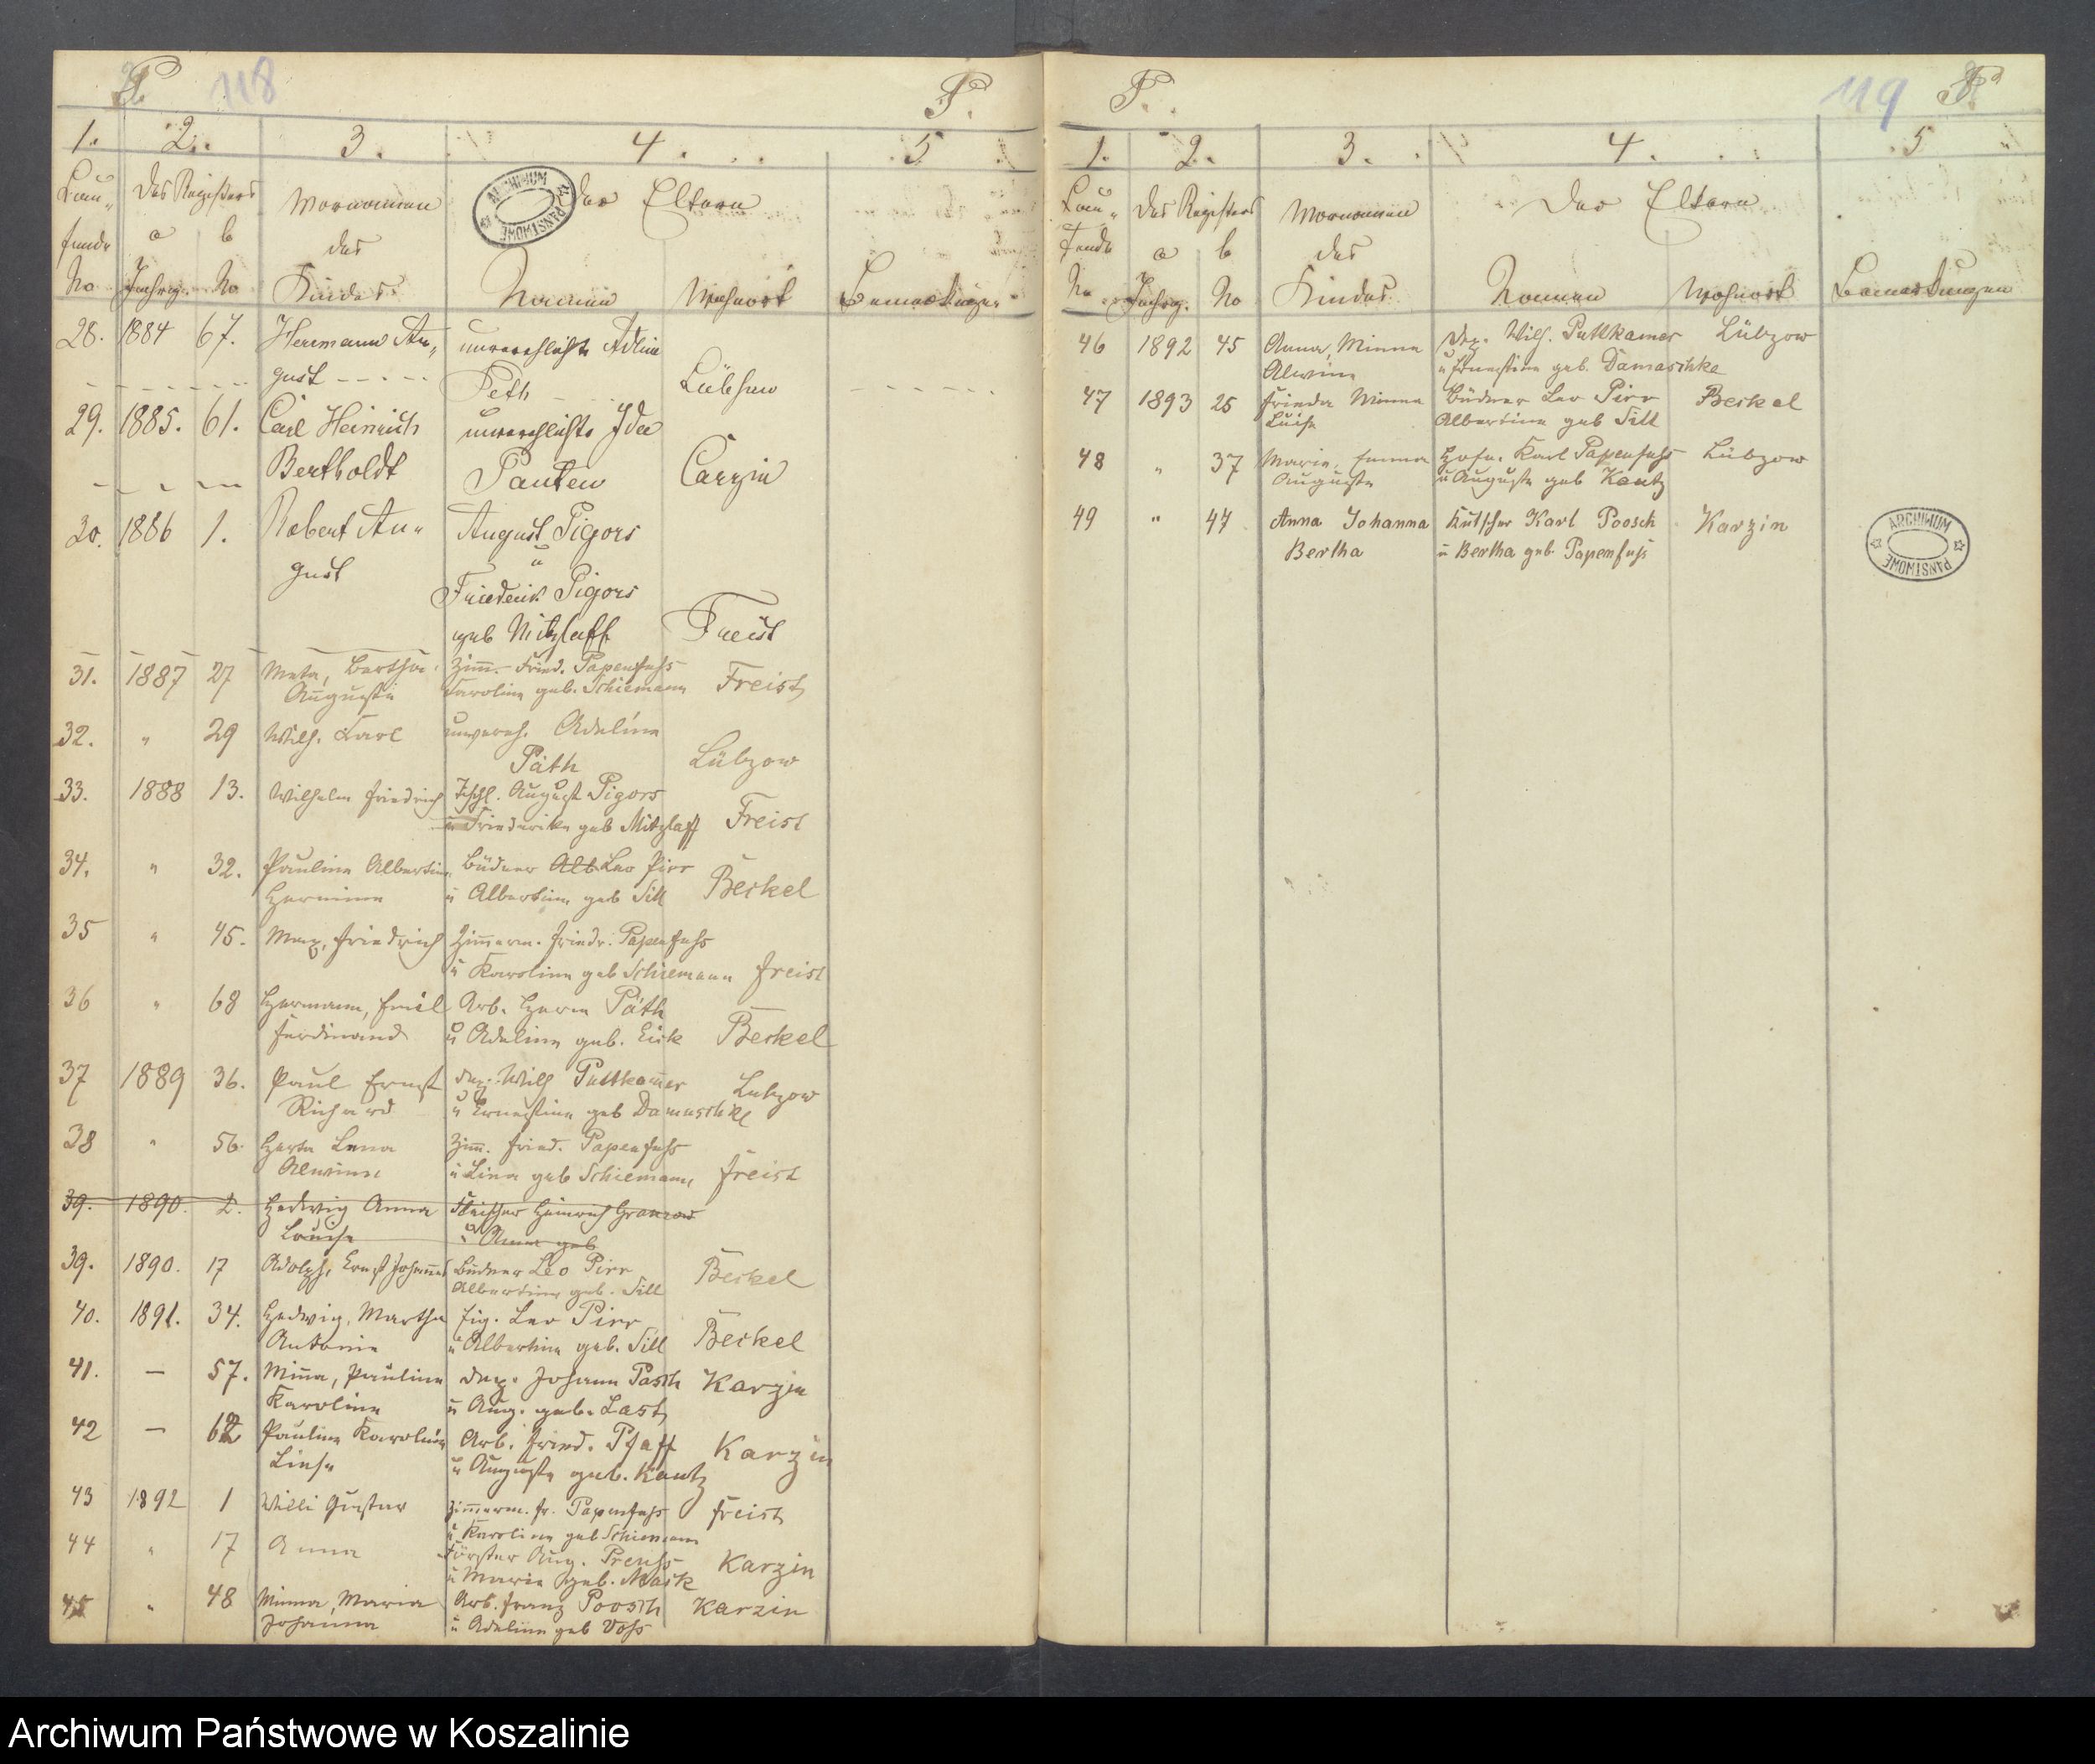 P 118 P.
1. 2. 3. 4. 5
Lau- Des Registers Vornamen Der Eltern
fende a b des
No Jahrg. No Kindes Namen Wohnort Bemerkungen
28. 1884 67. Hermann Au- unverehlichte Adline
gust Peth Lübsow
29. 1885. 61. Carl Heinrich unverehlichte Ida
Bertholdt Panten Carzin
30. 1886 1. Robert Au- August Pigors
gust u
Friederik Pigors
geb Mitzlaff Freist
31. 1887 27 Meta, Bertha Zimm. Fried. Papenfuhs
Auguste Karoline geb. Schiemann Freist
32. " 29 Wilh. Karl unvereh. Adeline
Päth Lübzow
33. 1888 13. Wilhelm Friedrich Tschl. August Pigors
u Friederike geb Mitzlaff Freist
34. " 32. Pauline Albertine Büdner Alb Leo Pirr
Hermine u Albertine geb Sill Beckel
35 " 45. Max, Friedrich Zimmerm. Friedr. Papenfuhs
u Karoline geb Schiemann Freist
36 " 68 Hermann, Emil Arb. Herm Päth
Ferdinand u Adeline geb. Eick Beckel
37 1889 36. Paul Ernst Wilh Puttkammer Lubzow
Richard u Ernestine geb Damaschke
38 " 56. Herta Lena Zimm. Fried. Papenfuhs
Alwine u Line geb Schiemann Freist
39. 1890. 2. Hedwig Anna Fleischer Heinrich Granzow
Louise u Anna geb
39. 1890. 17 Adolph, Ernst Johannes Büdner Leo Pirr
Albertine geb. Sill Beckel
40. 1891. 34. Hedwig, Martha Eig. Leo Pirr
Antonie u Albertine geb. Sill Beckel
41. — 57. Minna, Pauline Johann Pasch Karzin
Karoline u Aug. geb. Last
42 — 62 Pauline Karoline Arb. Fried. Pfaff Karzin
Liese u Auguste geb. Kautz
43 1892 1 Willi Gustav Zimmerm. Fr. Papenfuhs Freist
u Karoline geb Schiemann
44 " 17 Anna Förster Aug. Preuhs Karzin
u Marie geb. Mask
45 " 48 Minna, Maria Arb. Franz Poosch Karzin
Johanna u Adeline geb Vohs
P. 119 P
1. 2. 3. 4. 5
Lau- Des Registers Vornamen Der Eltern
fende a b des
No Jahrg. No Kindes Namen Wohnort Bemerkungen
46 1892 45 Anna, Minna Wilh. Puttkamer Lübzow
Alwine u Ernestine geb. Damaschke
47 1893 25 Frieda Minna Büdner Leo Pirr Beckel
Luise Albertine geb Sill
48 " 37 Marie, Emma Hofm. Karl Papenfuhs Lübzow
Auguste u Auguste geb Kautz
49 " 47 Anna Johanna Kutscher Karl Poosch Karzin
Bertha u Bertha geb. Papenfuhs
ARCHIWUM PAŃSTWOWE
ARCHIWUM PAŃSTWOWE
Archiwum Państwowe w Koszalinie